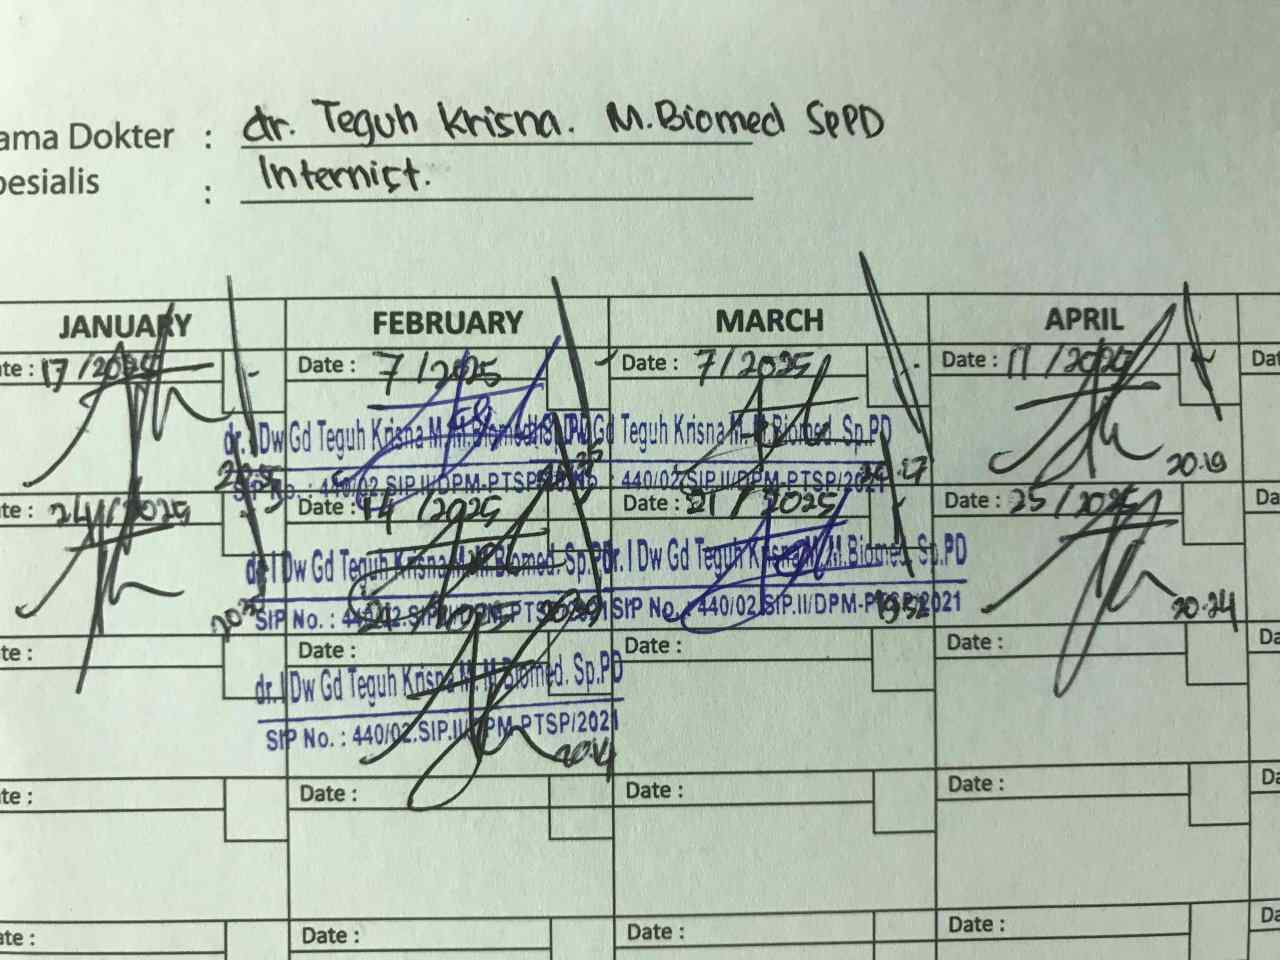 ama Dokter : dr. Teguh Krisna. M.Biomed SpPD
pesialis : Internist.
JANUARY FEBRUARY MARCH APRIL
te: 17/2025 Date: 7/2025 Date: 7/2025 Date: 11/2025 Dat
dr. I Dw Gd Teguh Krisna M. M.Biomed. Sp.PD Gd Teguh Krisna M. M.Biomed. Sp.PD
SIP No. : 440/02.SIP.II/DPM-PTSP/ : 440/02.SIP.II/DPM-PTSP/2021
20.19
te: 24/2025 Date: 14/2025 Date: 21/2025 Date: 25/2025 Da
dr. I Dw Gd Teguh Krisna M. M.Biomed. Sp.PD dr. I Dw Gd Teguh Krisna M. M.Biomed. Sp.PD
SIP No. : 440/02.SIP.II/DPM-PTSP/2021 SIP No. : 440/02.SIP.II/DPM-PTSP/2021
20.24
te: Date: Date: Date: Da
dr. I Dw Gd Teguh Krisna M. M.Biomed. Sp.PD
SIP No. : 440/02.SIP.II/DPM-PTSP/2021
te: Date: Date: Date: Da
te: Date: Date: Date: Da